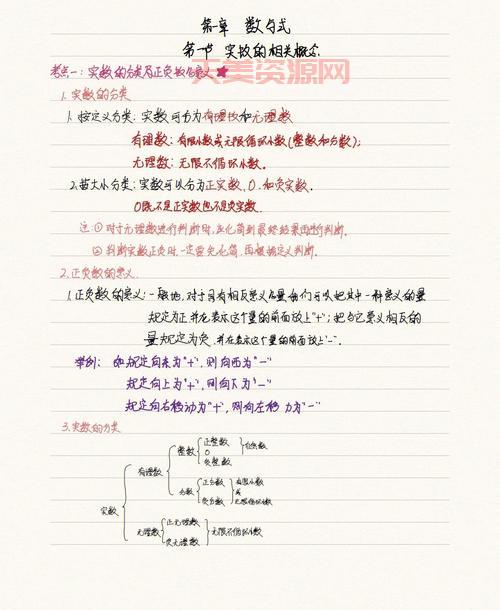 第一章 数与式
第一节 实数的相关概念
天美资源网
考点一：实数的分类及正负数的意义★
1.实数的分类
1.按定义分类：实数可分为有理数和无理数
有理数：有限小数或无限循环小数(整数和分数)；
无理数：无限不循环小数.
2.按大小分类：实数可以分为正实数、0、和负实数.
0既不是正实数也不是负实数.
注：① 对于无理数进行判断时，先化简到最终结果再进行判断.
② 判断实数正负时，一定要先化简，再根据定义判断.
2.正负数的意义
1.正负数的意义：一般地，对于具有相反意义的量，我们可以把其中一种意义的量
规定为正并在表示这个量的前面放上"+"；把与它意义相反的
量规定为负，并在表示这个量的前面放上"-".
举例： 如规定向东为"+"，则向西为"-"
规定向上为"+"，则向下为"-"
规定向右移动为"+"，则向左移动为"-"
3.实数的分类
实数
有理数
整数
正整数
0
负整数
自然数
分数
正分数
负分数
有限小数
或
无限循环小数
无理数
正无理数
负无理数
无限不循环小数